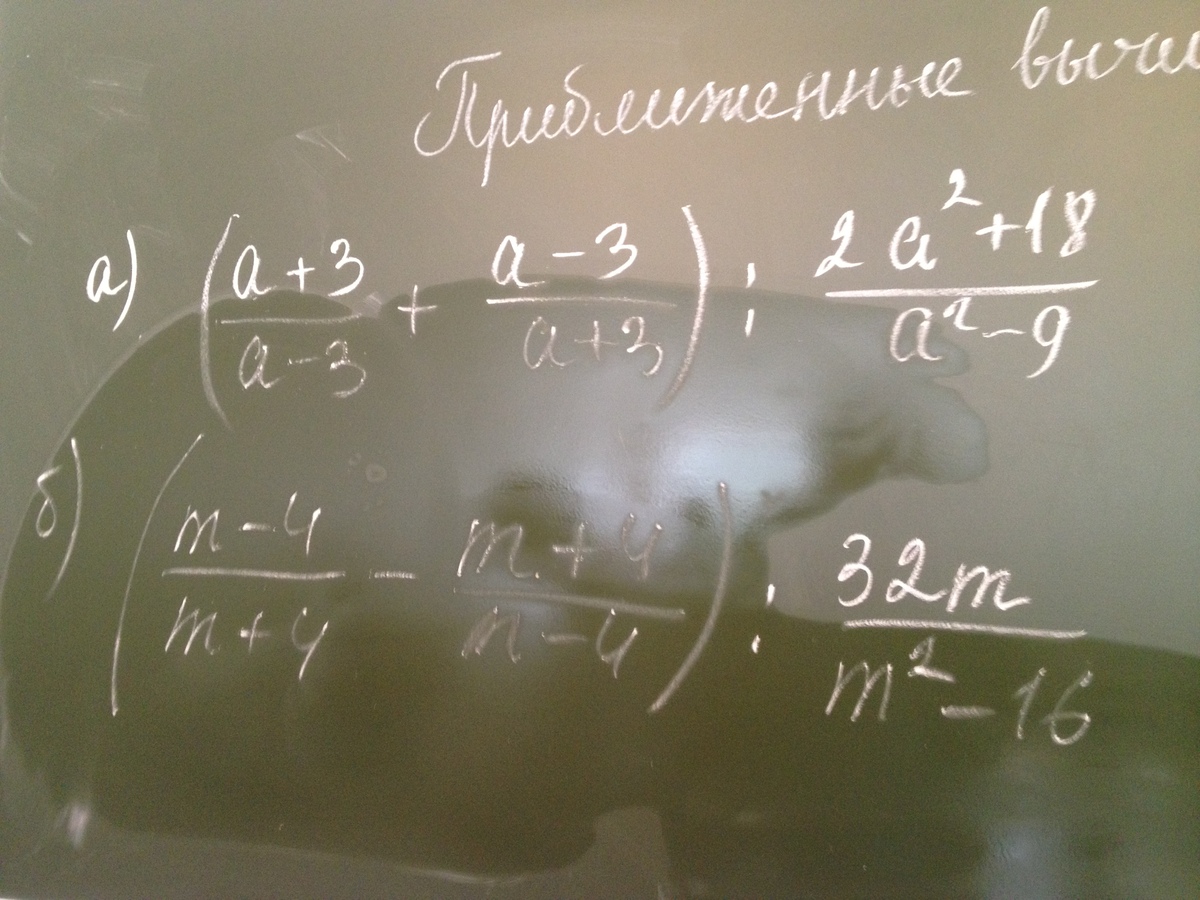 Приближенные
а) (a+3/a-3 + a-3/a+3) : 2a²+18/a²-9
б) (m-4/m+4 - m+4/m-4) : 32m/m²-16